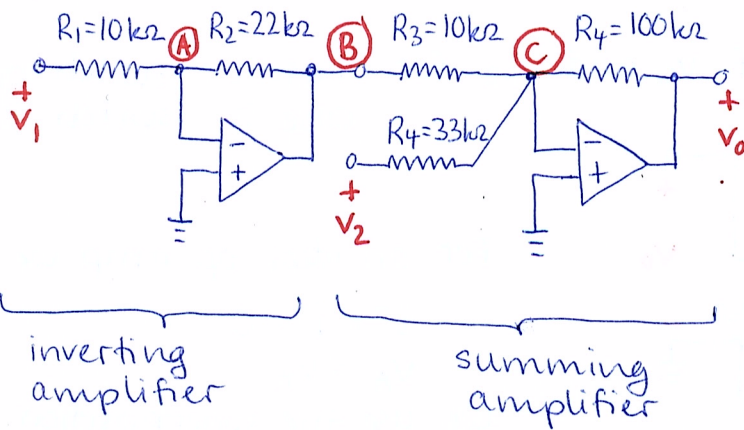 R₁=10kΩ A R₂=22kΩ B R₃=10kΩ C R₄=100kΩ
+ V₁
- +
R₄=33kΩ
+ V₂
- +
+ V₀
inverting amplifier
summing amplifier